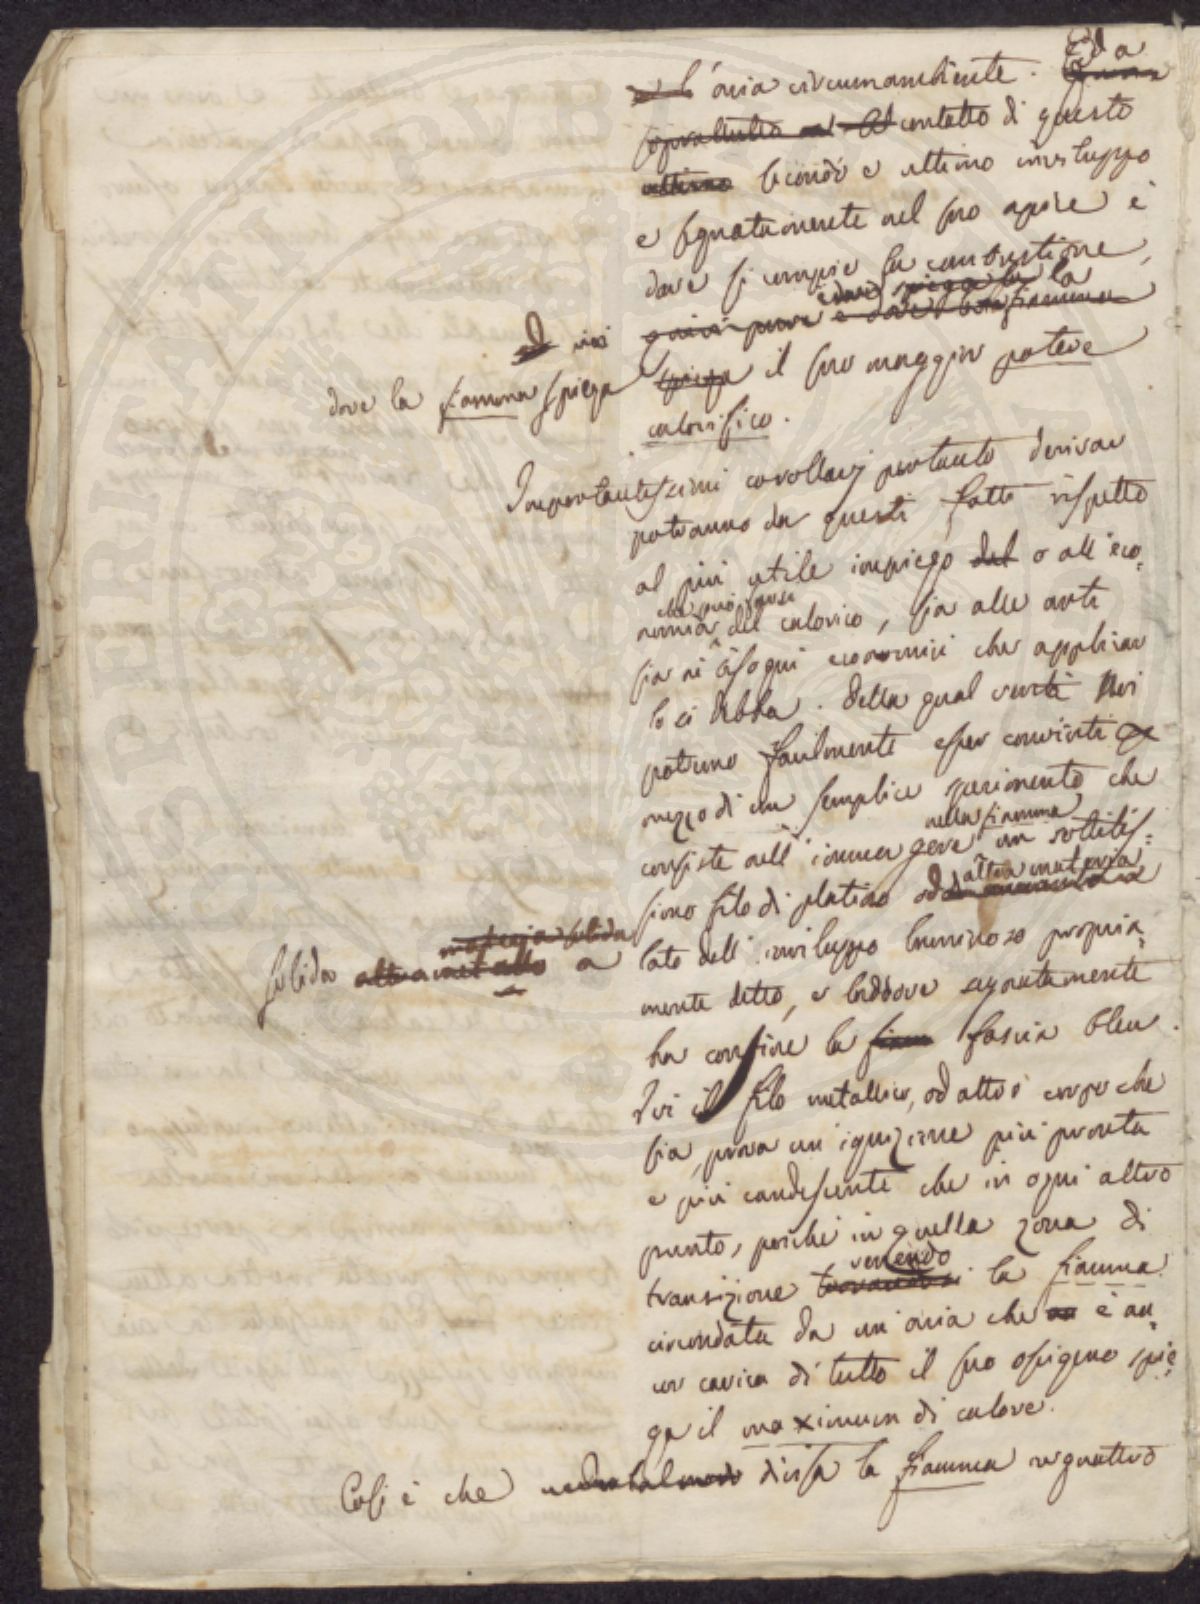 l'aria circumambiente. Ed a
contatto di questo
ultimo secondo e ultimo inviluppo
e segnatamente nel suo apice è
dove si compie la combustione,
ed ivi
dove la fiamma spiega spiega il suo maggior potere
calorifico.
Importantissimi corollarj pertanto derivar
potranno da questi fatti rispetto
al più utile impiego del o all'eco-
che può farsi
nomia del calorico, sia alle arti
sia ai bisogni economici che applicar
lo si debba. Della qual verità Noi
potremo facilmente esser convinti a
mezzo di un semplice sperimento, che
nella fiamma
consiste nell'immergere un sottilis-
altra materia
simo filo di platino od
materia solida
solida altro metallo a lato dell'inviluppo luminoso propria-
mente detto, e laddove segnatamente
ha confine la fascia bleu.
Ivi il filo metallico, od altro corpo che
sia, prova un'ignizione più pronta
e più candescente che in ogni altro
punto, poiché in quella zona di
venendo
transizione trovandosi la fiamma
circondata da un'aria che è an-
cor carica di tutto il suo ossigeno spie-
ga il maximum di calore.
Così è che divisa la fiamma in quattro